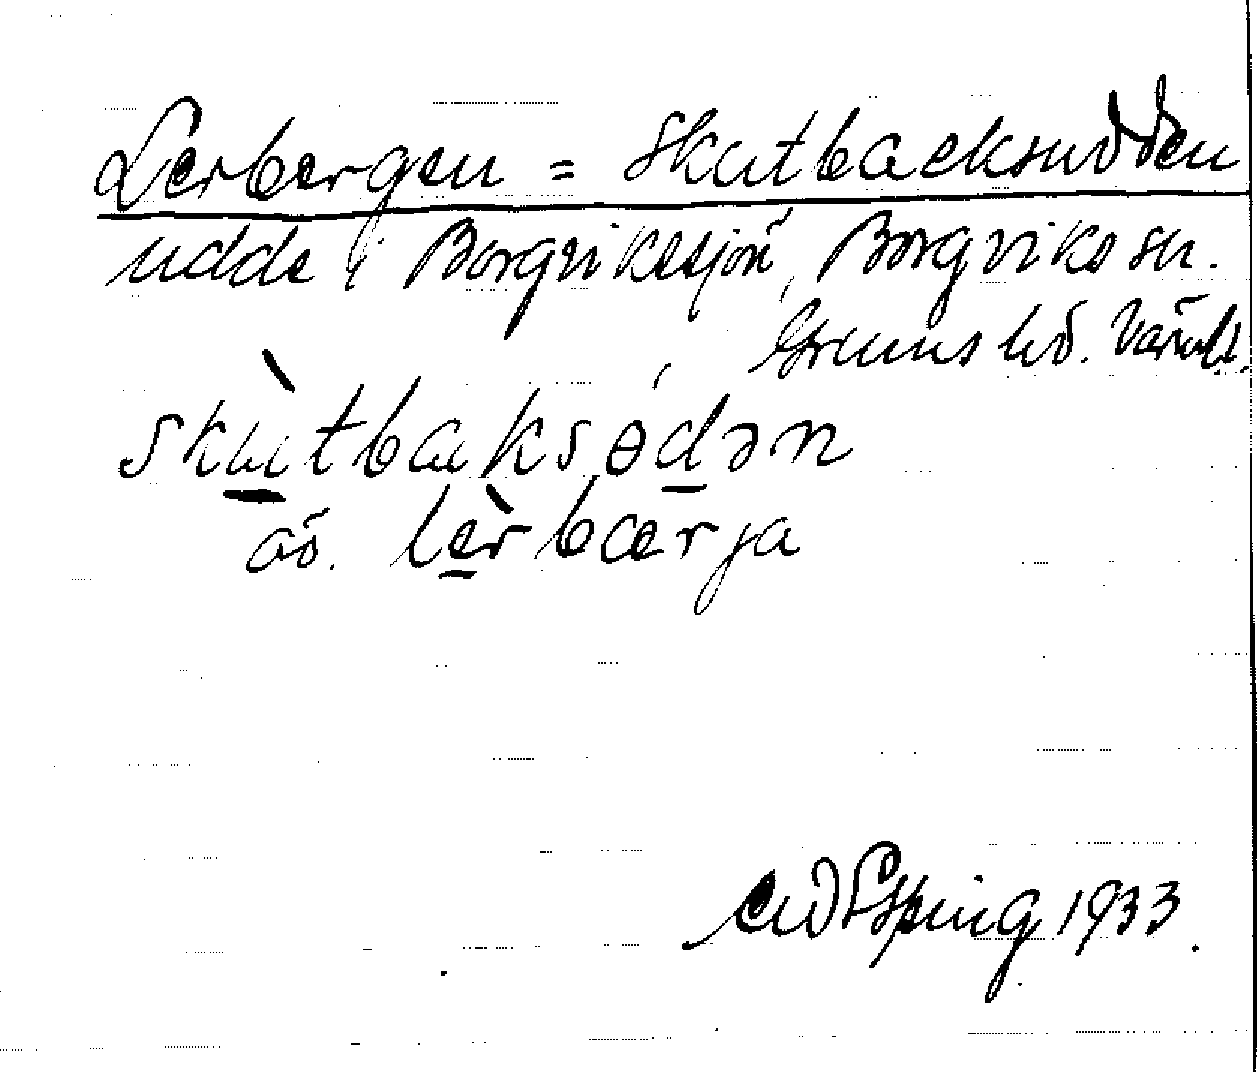 Lerbergen = Skutbacksudden
udde i Borgvikssjön, Borgviks sn.
Grums hd. Värml.
skùtbaksɵdən
äö. lèrbærja
1933.